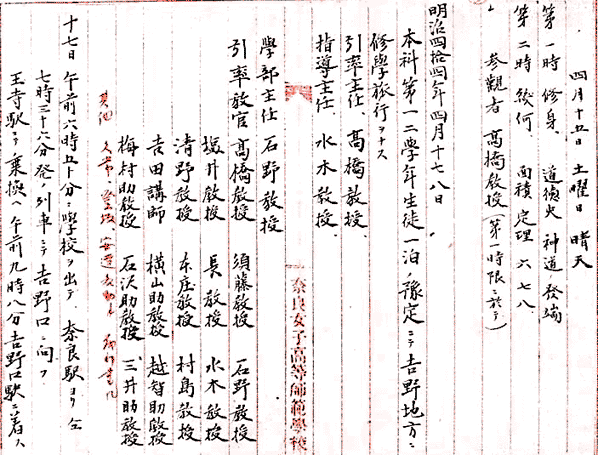 四月十五日 土曜日 晴天
第一時 修身、道徳史 神道発端
第二時 幾何 面積定理 六七八
参観者 髙橋教授(第一時限ニ於テ)
明治四拾四年四月十七八日
本科第一二學年生徒一泊ノ豫定ニテ吉野地方ニ
修學旅行ヲナス
引率主任、髙橋教授、
指導主任、水木教授、
奈良女子高等師範學校
學部主任 石野教授
引率教官 髙橋教授 須藤教授 石野教授
堀井教授 長教授 水木教授
清野教授 本庄教授 村島教授
吉田講師 横山助教授 越智助教授
梅村助教授 石沢助教授 三井助教授
其他
十七日 午前六時五十分ニ學校ヲ出テ、奈良駅ヨリ
七時三十六分発ノ列車ニテ吉野口ニ向フ
王寺駅ニテ乗換ヘ午前九時八分吉野口駅ニ着ス